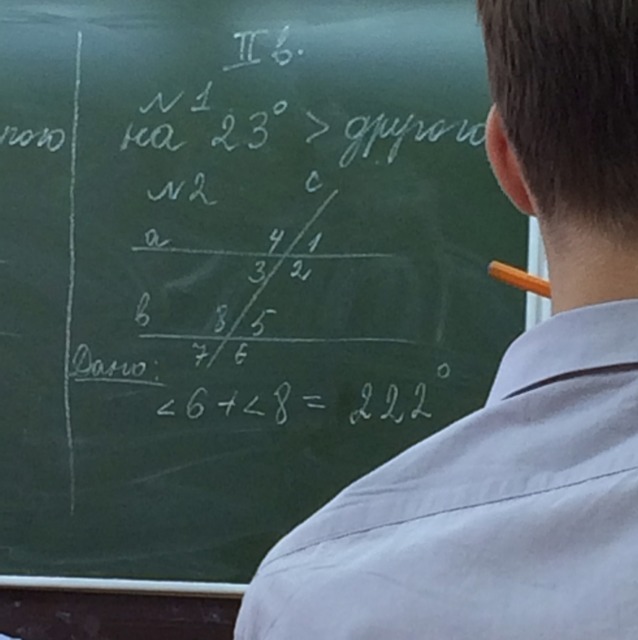 II в.
N1
ного
на 23° > другого
N2
c
a
4 1
3 2
в
8 5
7 6
Дано:
<6+<8=222°